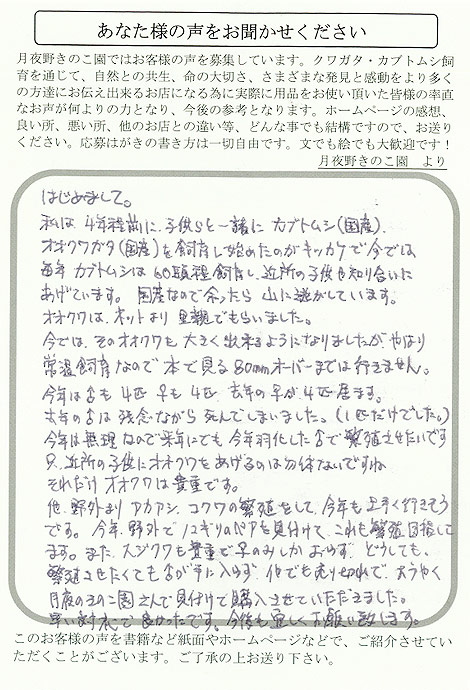 あなた様の声をお聞かせください
月夜野きのこ園ではお客様の声を募集しています。クワガタ・カブトムシ飼
育を通じて、自然との共生、命の大切さ、さまざまな発見と感動をより多く
の方達にお伝え出来るお店になる為に実際に用品をお使い頂いた皆様の率直
なお声が何よりの力となり、今後の参考となります。ホームページの感想、
良い所、悪い所、他のお店との違い等、どんな事でも結構ですので、お送り
ください。応募はがきの書き方は一切自由です。文でも絵でも大歓迎です！
月夜野きのこ園　より
はじめまして。
私は 4年程前に、子供らと一諸に カブトムシ(国産)、
オオクワガタ(国産)を飼育し始めたのがキッカケで今では
毎年 カブトムシは 60頭程飼育し、近所の子供や知り合いに
あげています。国産なので余ったら 山に逃がしています。
オオクワは、ネットより 里親でもらいました。
今では、そのオオクワも 大きく出来るようになりましたが やはり
常温飼育なので 本で見る 80mmオーバーまでは行きません。
今年は♂も 4匹 ♀も 4匹 去年の♀が 4匹居ます。
去年の♂は 残念ながら 死んでしまいました。(1匹だけでした。)
今年は無理なので来年にでも 今年羽化した♂で繁殖させたいです
只、近所の子供にオオクワをあげるのは勿体ないですね
それだけ オオクワは 貴重です。
他、野外より アカアシ、コクワの繁殖をして、今年も上手く行きそう
です。今年、野外で ノコギリのペアを見付けて、これも繁殖目指して
ます。また、スジクワも貴重で♀のみしか おらず、どうしても、
繁殖させたくても♂が手に入らず、他でも売り切れで、ようやく
月夜のきのこ園さんで見付けて購入させていただきました。
早い対応で良かったです。今後も宜しくお願い致します。
このお客様の声を書籍など紙面やホームページなどで、ご紹介させてい
ただくことがございます。ご了承の上お送り下さい。